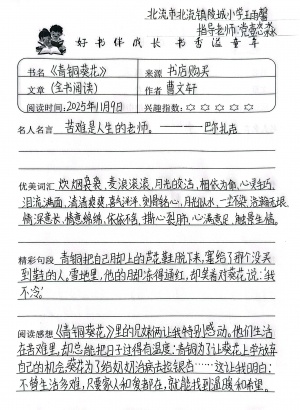 北流市北流镇陵城小学王雨馨
指导老师:党意淼
好书伴成长 书香溢童年
书名 《青铜葵花》 来源 书店购买
文章 (全书阅读) 作者 曹文轩
阅读时间:2025年11月9日 兴趣指数:☆☆☆☆☆
名人名言 苦难是人生的老师。————巴尔扎克
优美词汇 炊烟袅袅,麦浪滚滚,月光皎洁,相依为命,心灵手巧,
泪流满面,清清爽爽,喜气洋洋,刻骨铭心,月光似水,一尘不染,浩瀚无垠
情深意长,情意绵绵,依依不舍,撕心裂肺,心满意足,触景生情。
精彩句段 青铜把自己脚上的芦花鞋脱下来,塞给了那个没买
到鞋的人。雪地里,他的脚冻得通红,却笑着对葵花说:“我
不冷”
阅读感想 《青铜葵花》里的兄妹俩让我特别感动。他们生活
在苦难里,却总能把日子过得有温度:青铜为了让葵花上学放弃
自己的机会,葵花为了给奶奶治病去捡银杏……这让我明白:
不管生活多难,只要家人和爱都在,就能找到温暖和希望。